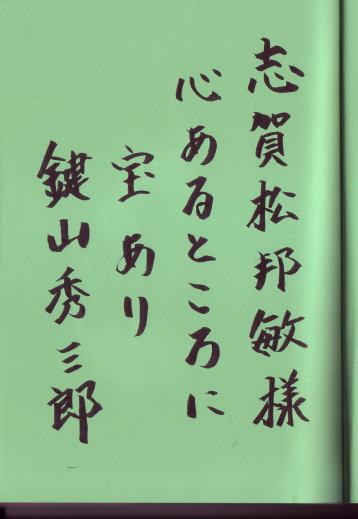 志賀松邦敏様
心あるところに
宝あり
鍵山秀三郎